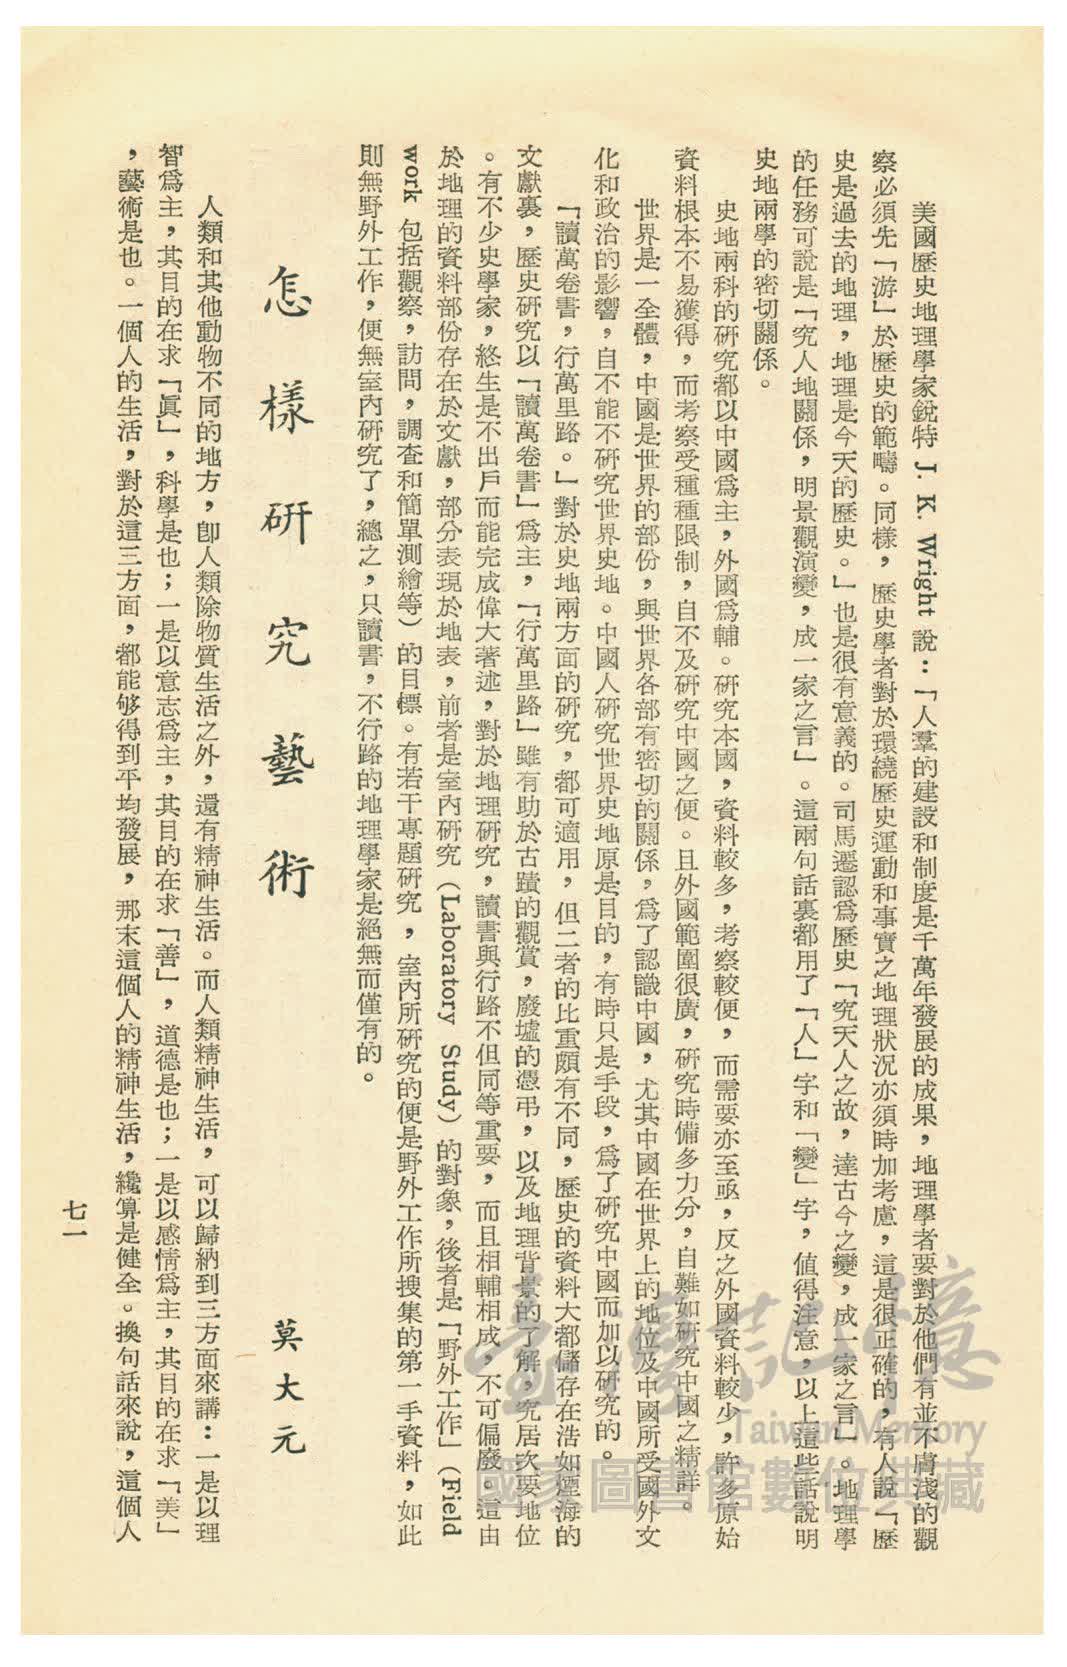 美國歷史地理學家銳特 J. K. Wright 說：「人羣的建設和制度是千萬年發展的成果，地理學者要對於他們有並不膚淺的觀
察必須先「游」於歷史的範疇。同樣，歷史學者對於環繞歷史運動和事實之地理狀況亦須時加考慮，這是很正確的，有人說「歷
史是過去的地理，地理是今天的歷史。」也是很有意義的。司馬遷認爲歷史「究天人之故，達古今之變，成一家之言」。地理學
的任務可說是「究人地關係，明景觀演變，成一家之言」。這兩句話裏都用了「人」字和「變」字，值得注意，以上這些話說明
史地兩學的密切關係。
史地兩科的研究都以中國爲主，外國爲輔。研究本國，資料較多，考察較便，而需要亦至亟，反之外國資料較少，許多原始
資料根本不易獲得，而考察受種種限制，自不及研究中國之便。且外國範圍很廣，研究時備多力分，自難如研究中國之精詳。
世界是一全體，中國是世界的部份，與世界各部有密切的關係，爲了認識中國，尤其中國在世界上的地位及中國所受國外文
化和政治的影響，自不能不研究世界史地。中國人研究世界史地原是目的，有時只是手段，爲了研究中國而加以研究的。
「讀萬卷書，行萬里路。」對於史地兩方面的研究，都可適用，但二者的比重頗有不同，歷史的資料大都儲存在浩如煙海的
文獻裏，歷史研究以「讀萬卷書」爲主，「行萬里路」雖有助於古蹟的觀賞，廢墟的憑弔，以及地理背景的了解，究居次要地位
。有不少史學家，終生是不出戶而能完成偉大著述，對於地理研究，讀書與行路不但同等重要，而且相輔相成，不可偏廢。這由
於地理的資料部份存在於文獻，部分表現於地表，前者是室內研究（Laboratory Study）的對象，後者是「野外工作」（Field
work 包括觀察，訪問，調查和簡單測繪等）的目標。有若干專題研究，室內所研究的便是野外工作所搜集的第一手資料，如此
則無野外工作，便無室內研究了，總之，只讀書，不行路的地理學家是絕無而僅有的。
怎樣研究藝術
莫大元
人類和其他動物不同的地方，卽人類除物質生活之外，還有精神生活。而人類精神生活，可以歸納到三方面來講：一是以理
智爲主，其目的在求「眞」，科學是也；一是以意志爲主，其目的在求「善」，道德是也；一是以感情爲主，其目的在求「美」
，藝術是也。一個人的生活，對於這三方面，都能够得到平均發展，那末這個人的精神生活，纔算是健全。換句話來說，這個人
七一
臺灣記憶
Taiwan Memory
國家圖書館數位典藏